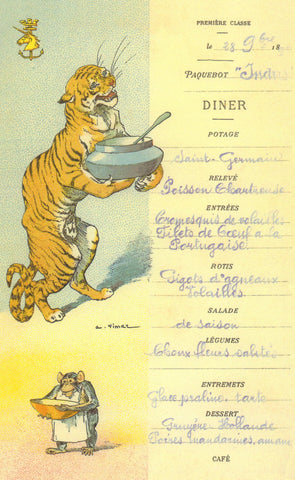 PREMIÈRE CLASSE
le 28 9bre 18
PAQUEBOT "Indus"
DINER
POTAGE
Saint-Germain
RELEVÉ
Poisson Chartreuse
ENTRÉES
Cromesquis de volailles
Filets de Bœuf a la
Portugaise
ROTIS
Gigots d'agneaux
Volailles
SALADE
de saison
LÉGUMES
Choux fleurs
ENTREMETS
Glace praline, tarte
DESSERT
Gruyère Hollande
Poires mandarines,
CAFÉ
A. Vimar